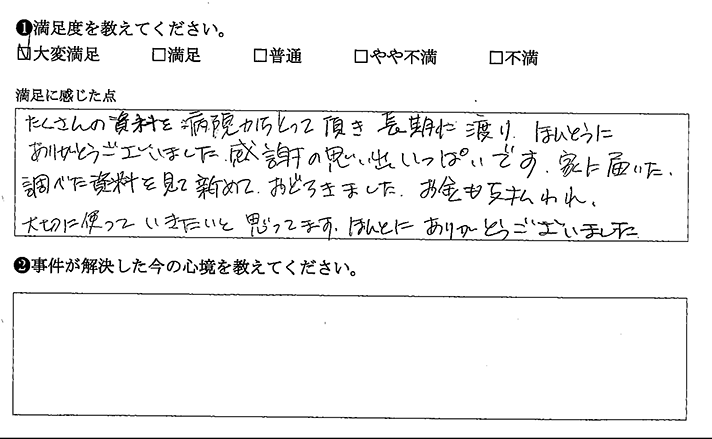 ❶満足度を教えてください。
☑大変満足 □満足 □普通 □やや不満 □不満
満足に感じた点
たくさんの資料を病院からとって頂き長期に渡り、ほんとうに
ありがとうございました。感謝の思い出いっぱいです。家に届いた、
調べた資料を見て新めて、おどろきました。お金も支払われ、
大切に使っていきたいと思ってます。ほんとにありがとうございました
❷事件が解決した今の心境を教えてください。